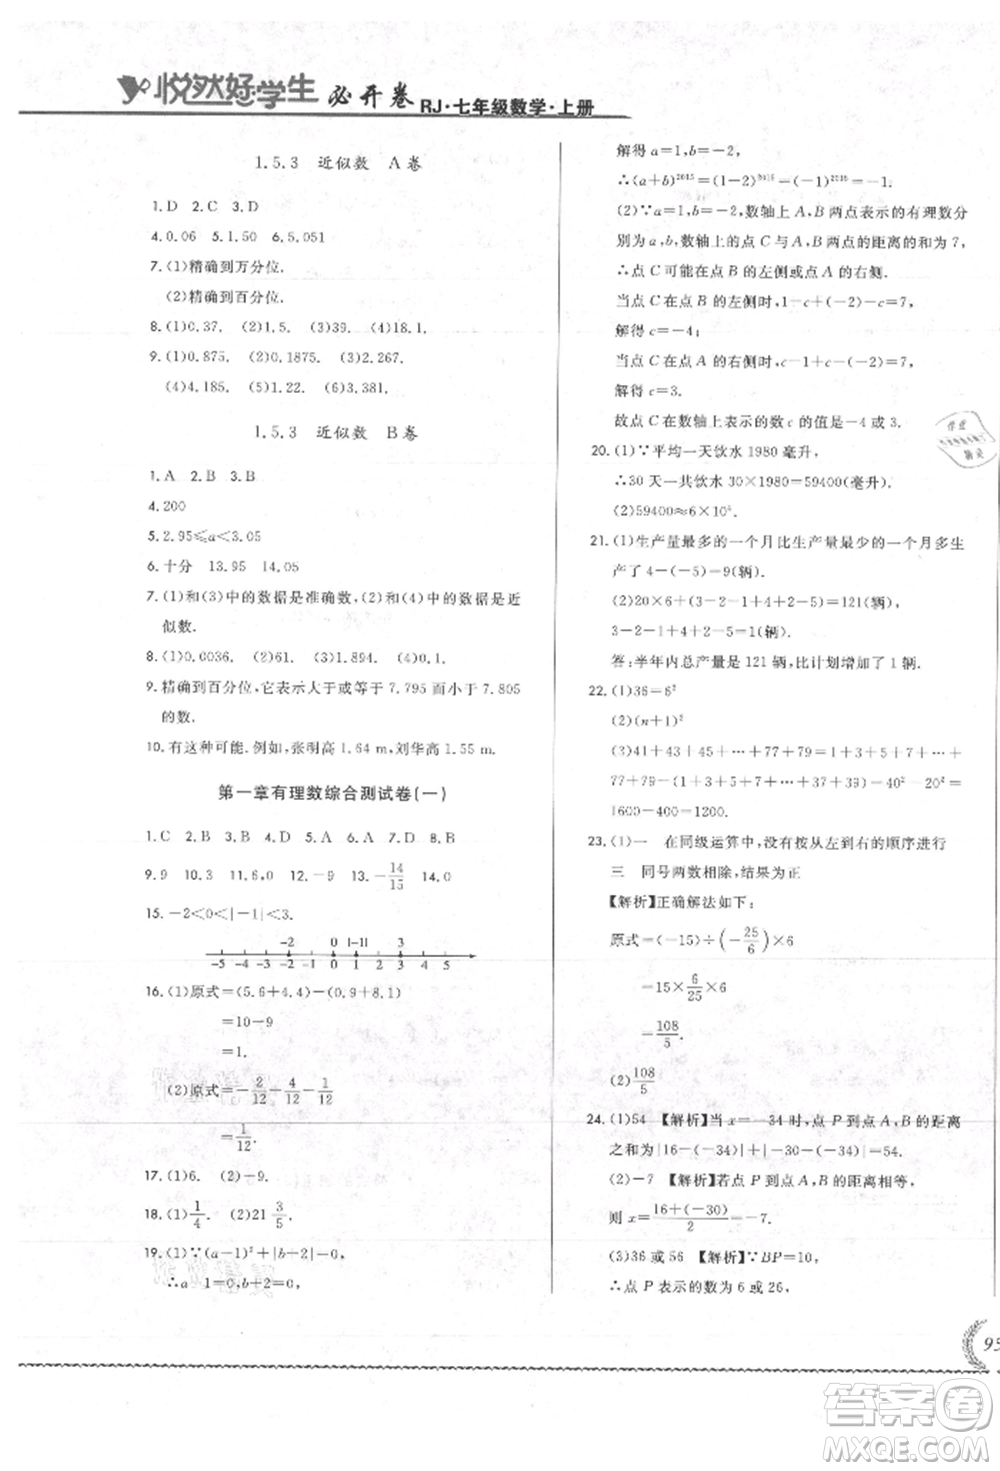 悦然好学生 必开卷 RJ·七年级数学·上册
1.5.3 近似数 A卷
1.D 2.C 3.D
4.0.06 5.1.50 6.5.051
7.(1)精确到万分位.
(2)精确到百分位.
8.(1)0.37. (2)1.5. (3)39. (4)18.1.
9.(1)0.875. (2)0.1875. (3)2.267.
(4)4.185. (5)1.22. (6)3.381.
1.5.3 近似数 B卷
1.A 2.B 3.B
4.200
5.2.95≤a<3.05
6.十分 13.95 14.05
7.(1)和(3)中的数据是准确数,(2)和(4)中的数据是近
似数.
8.(1)0.0036. (2)61. (3)1.894. (4)0.1.
9.精确到百分位,它表示大于或等于7.795而小于7.805
的数.
10.有这种可能.例如,张明高1.64 m,刘华高1.55 m.
第一章有理数综合测试卷(一)
1.C 2.B 3.B 4.D 5.D 6.A 7.D 8.B
9.9 10.3 11.6 12.-9 13.-14/15 14.0
15.-2<0<|-1|<3.
-2 0 |-1| 3
-5 -4 -3 -2 -1 0 1 2 3 4 5
16.(1)原式=(5.6+4.4)-(0.9+8.1)
=10-9
=1.
(2)原式=-2/12+4/12-1/12
=1/12.
17.(1)6. (2)-9.
18.(1)1/4. (2)21 3/5.
19.(1)∵(a-1)²+|b+2|=0,
∴a 1=0,b+2=0,
解得a=1,b=-2,
∴(a+b)²⁰¹⁵=(1-2)²⁰¹⁵=(-1)²⁰¹⁵=-1.
(2)∵a=1,b=-2,数轴上A,B两点表示的有理数分
别为a,b,数轴上的点C与A,B两点的距离的和为7,
∴点C可能在点B的左侧或点A的右侧.
当点C在点B的左侧时,1-c+(-2)-c=7,
解得c=-4;
当点C在点A的右侧时,c-1+c-(-2)=7,
解得c=3.
故点C在数轴上表示的数c的值是-4或3.
20.(1)∵平均一天饮水1980毫升,
∴30天一共饮水30×1980=59400(毫升).
(2)59400≈6×10⁴.
21.(1)生产量最多的一个月比生产量最少的一个月多生
产了4-(-5)=9(辆).
(2)20×6+(3-2-1+4+2-5)=121(辆),
3-2-1+4+2-5=1(辆).
答:半年内总产量是121辆,比计划增加了1辆.
22.(1)36=6²
(2)(n+1)²
(3)41+43+45+…+77+79=(1+3+5+…+77+
79)-(1+3+5+…+37+39)=40²-20²=
1600-400=1200.
23.(1)一 在同级运算中,没有按从左到右的顺序进行
三 同号两数相除,结果为正
【解析】正确解法如下:
原式=(-15)÷(-25/6)×6
=15×6/25×6
=108/5.
(2)108/5
24.(1)54 【解析】当x=-34时,点P到点A,B的距离
之和为|16-(-34)|+|-30-(-34)|=54.
(2)-7 【解析】若点P到点A,B的距离相等,
则x=16+(-30)/2=-7.
(3)36或56 【解析】∵BP=10,
∴点P表示的数为6或26,
95
答案圈
MXQE.COM